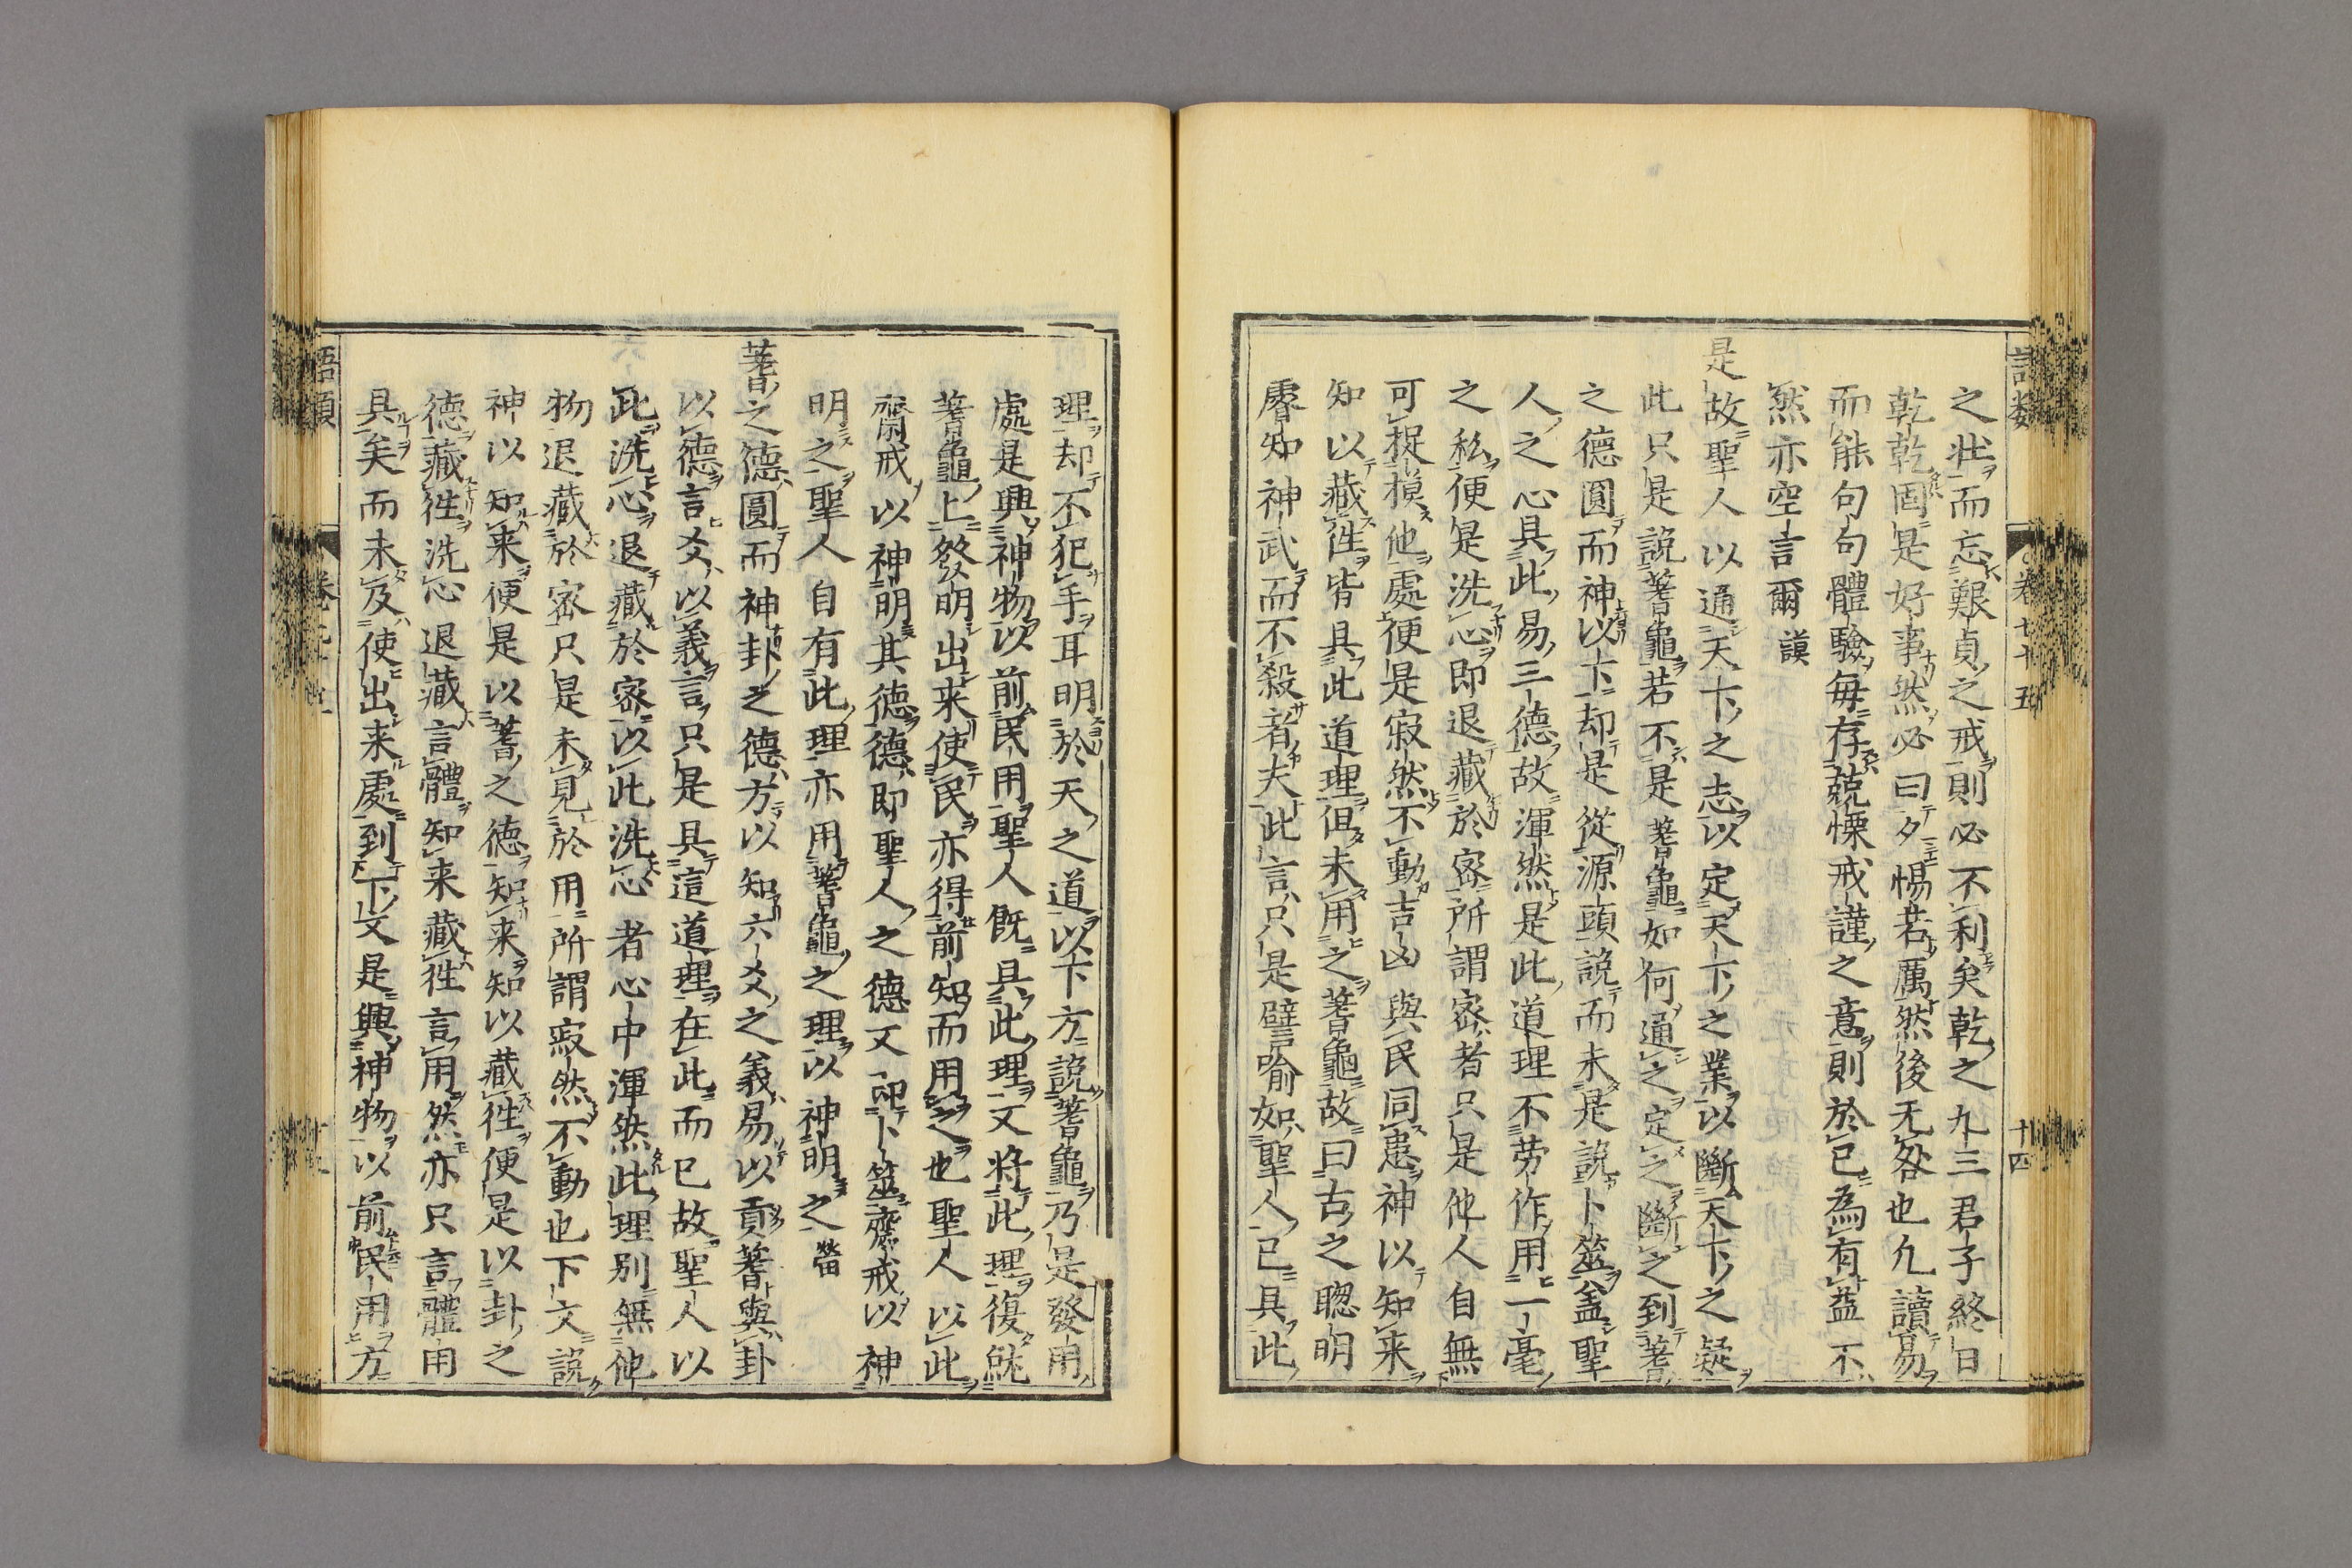 語類
卷七十五
十四
之壯而忘艱貞之戒則必不利矣乾之九三君子終日
乾乾固是好事然必曰夕惕若厲然後无咎也凡讀易
而能句句體驗每存兢慄戒謹之意則於已為有益不
然亦空言爾 謨
是故聖人以通天下之志以定天下之業以斷天下之疑
此只是說蓍龜若不是蓍龜如何通之定之斷之到蓍
之德圓而神以下却是從源頭說而未是說卜筮盖聖
人之心具此易三德故渾然是此道理不勞作用一毫
之私便是洗心即退藏於密所謂密者只是他人自無
可捉摸他處便是寂然不動吉凶與民同患神以知来
知以藏徃皆具此道理但未用之蓍龜故曰古之聦明
睿知神武而不殺者夫此言只是譬喻如聖人已具此
理却不犯手耳明於天之道以下方說蓍龜乃是發用
處是興神物以前民用聖人既具此理又將此理復就
蓍龜上發明出来使民亦得前知而用之也聖人以此
齋戒以神明其德德即聖人之德又即卜筮齋戒以神
明之聖人自有此理亦用蓍龜之理以神明之 㽦
蓍之德圓而神卦之德方以知六爻之義易以貢蓍與卦
以德言爻以義言只是具這道理在此而已故聖人以
此洗心退藏於密以此洗心者心中渾然此理別無他
物退藏於密只是未見於用所謂寂然不動也下文說
神以知来便是以蓍之德知来知以藏徃便是以卦之
德藏徃洗心退藏言體知来藏徃言用然亦只言體用
具矣而未及使出来處到下文是興神物以前民用方
語類